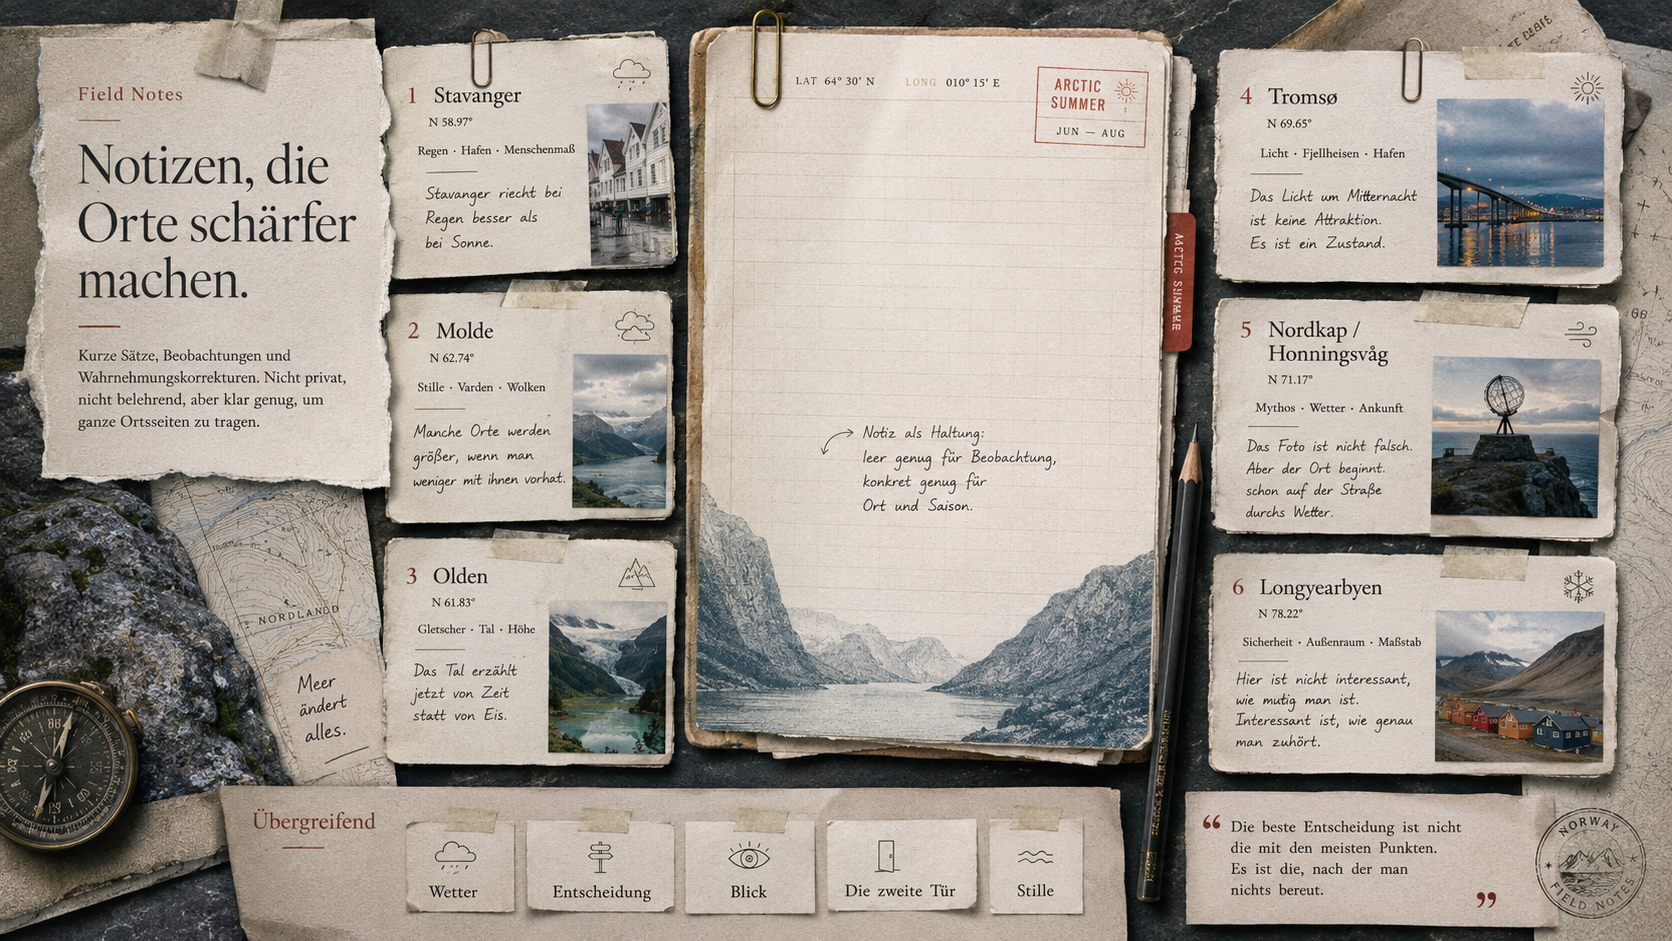 Field Notes
Notizen, die
Orte schärfer
machen.
Kurze Sätze, Beobachtungen und
Wahrnehmungskorrekturen. Nicht privat,
nicht belehrend, aber klar genug, um
ganze Ortsseiten zu tragen.
1 Stavanger
N 58.97°
Regen · Hafen · Menschenmaß
Stavanger riecht bei
Regen besser als
bei Sonne.
2 Molde
N 62.74°
Stille · Varden · Wolken
Manche Orte werden
größer, wenn man
weniger mit ihnen vorhat.
3 Olden
N 61.83°
Gletscher · Tal · Höhe
Das Tal erzählt
jetzt von Zeit
statt von Eis.
NORDLAND
Meer
ändert
alles.
LAT 64° 30' N LONG 010° 15' E
ARCTIC
SUMMER
JUN — AUG
Notiz als Haltung:
leer genug für Beobachtung,
konkret genug für
Ort und Saison.
4 Tromsø
N 69.65°
Licht · Fjellheisen · Hafen
Das Licht um Mitternacht
ist keine Attraktion.
Es ist ein Zustand.
5 Nordkap /
Honningsvåg
N 71.17°
Mythos · Wetter · Ankunft
Das Foto ist nicht falsch.
Aber der Ort beginnt.
schon auf der Straße
durchs Wetter.
6 Longyearbyen
N 78.22°
Sicherheit · Außenraum · Maßstab
Hier ist nicht interessant,
wie mutig man ist.
Interessant ist, wie genau
man zuhört.
Übergreifend
Wetter
Entscheidung
Blick
Die zweite Tür
Stille
“ Die beste Entscheidung ist nicht
die mit den meisten Punkten.
Es ist die, nach der man
nichts bereut. ”
NORWAY
FIELD NOTES